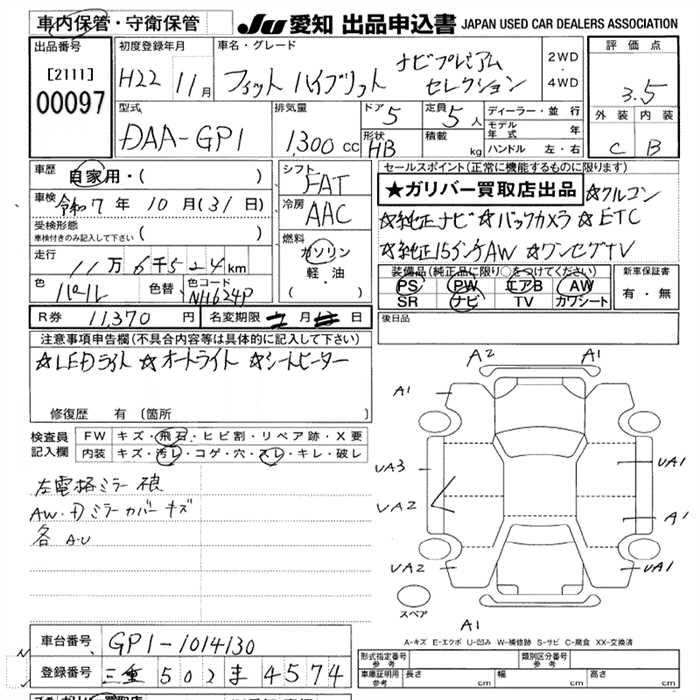 車内保管・守衛保管
JU 愛知 出品申込書 JAPAN USED CAR DEALERS ASSOCIATION
出品番号
[2111]
00097
初度登録年月
H22 11月
車名・グレード
フィット ハイブリッド ナビプレミアム セレクション
2WD
・
4WD
評価点
3.5
外装 内装
C B
型式
DAA-GP1
排気量
1,300 cc
ドア 5
定員 5人
形状 HB
積載 kg
ディーラー・並行
モデル年式 年
ハンドル 左・右
車歴
自家用・( )
車検
令和7年10月(31日)
受検形態
車検付きのみ記入して下さい ( )
走行
11万6千524km
色 パール
色替
色コード NH624P
シフト
FAT
冷房
AAC
燃料
ガソリン
軽・油
( )
セールスポイント(正常に機能するものに限ります)
★ガリバー買取店出品 ☆クルコン
☆純正ナビ ☆バックカメラ ☆ETC
☆純正15インチAW ☆ワンセグTV
装備品(純正品に限り○をつけてください)
PS PW エアB AW
SR ナビ TV カワシート
新車保証書
有・無
R券 11,370円
名変期限 月 日
後日品
注意事項申告欄(不具合内容等は具体的に記入して下さい)
☆LEDライト ☆オートライト ☆シートヒーター
修復歴 有 (箇所 )
検査員
記入欄
FW キズ・飛石・ヒビ割・リペア跡・X要
内装 キズ・汚レ・コゲ・穴・スレ・キレ・破レ
左電格ミラー
AW・ ミラーカバーキズ
各A・U
A2 A1
A1
UA3 UA1
UA2 A1
UA2 UA1
A1
スペア
A-キズ E-エクボ U-凹み W-補修跡 S-サビ C-腐食 XX-交換済
車台番号 GP1-1014130
登録番号 三重 502 ま 4574
形式指定番号
参考
類別区分番号
参考
車庫証明用
参考
長さ cm
幅 cm
高さ cm